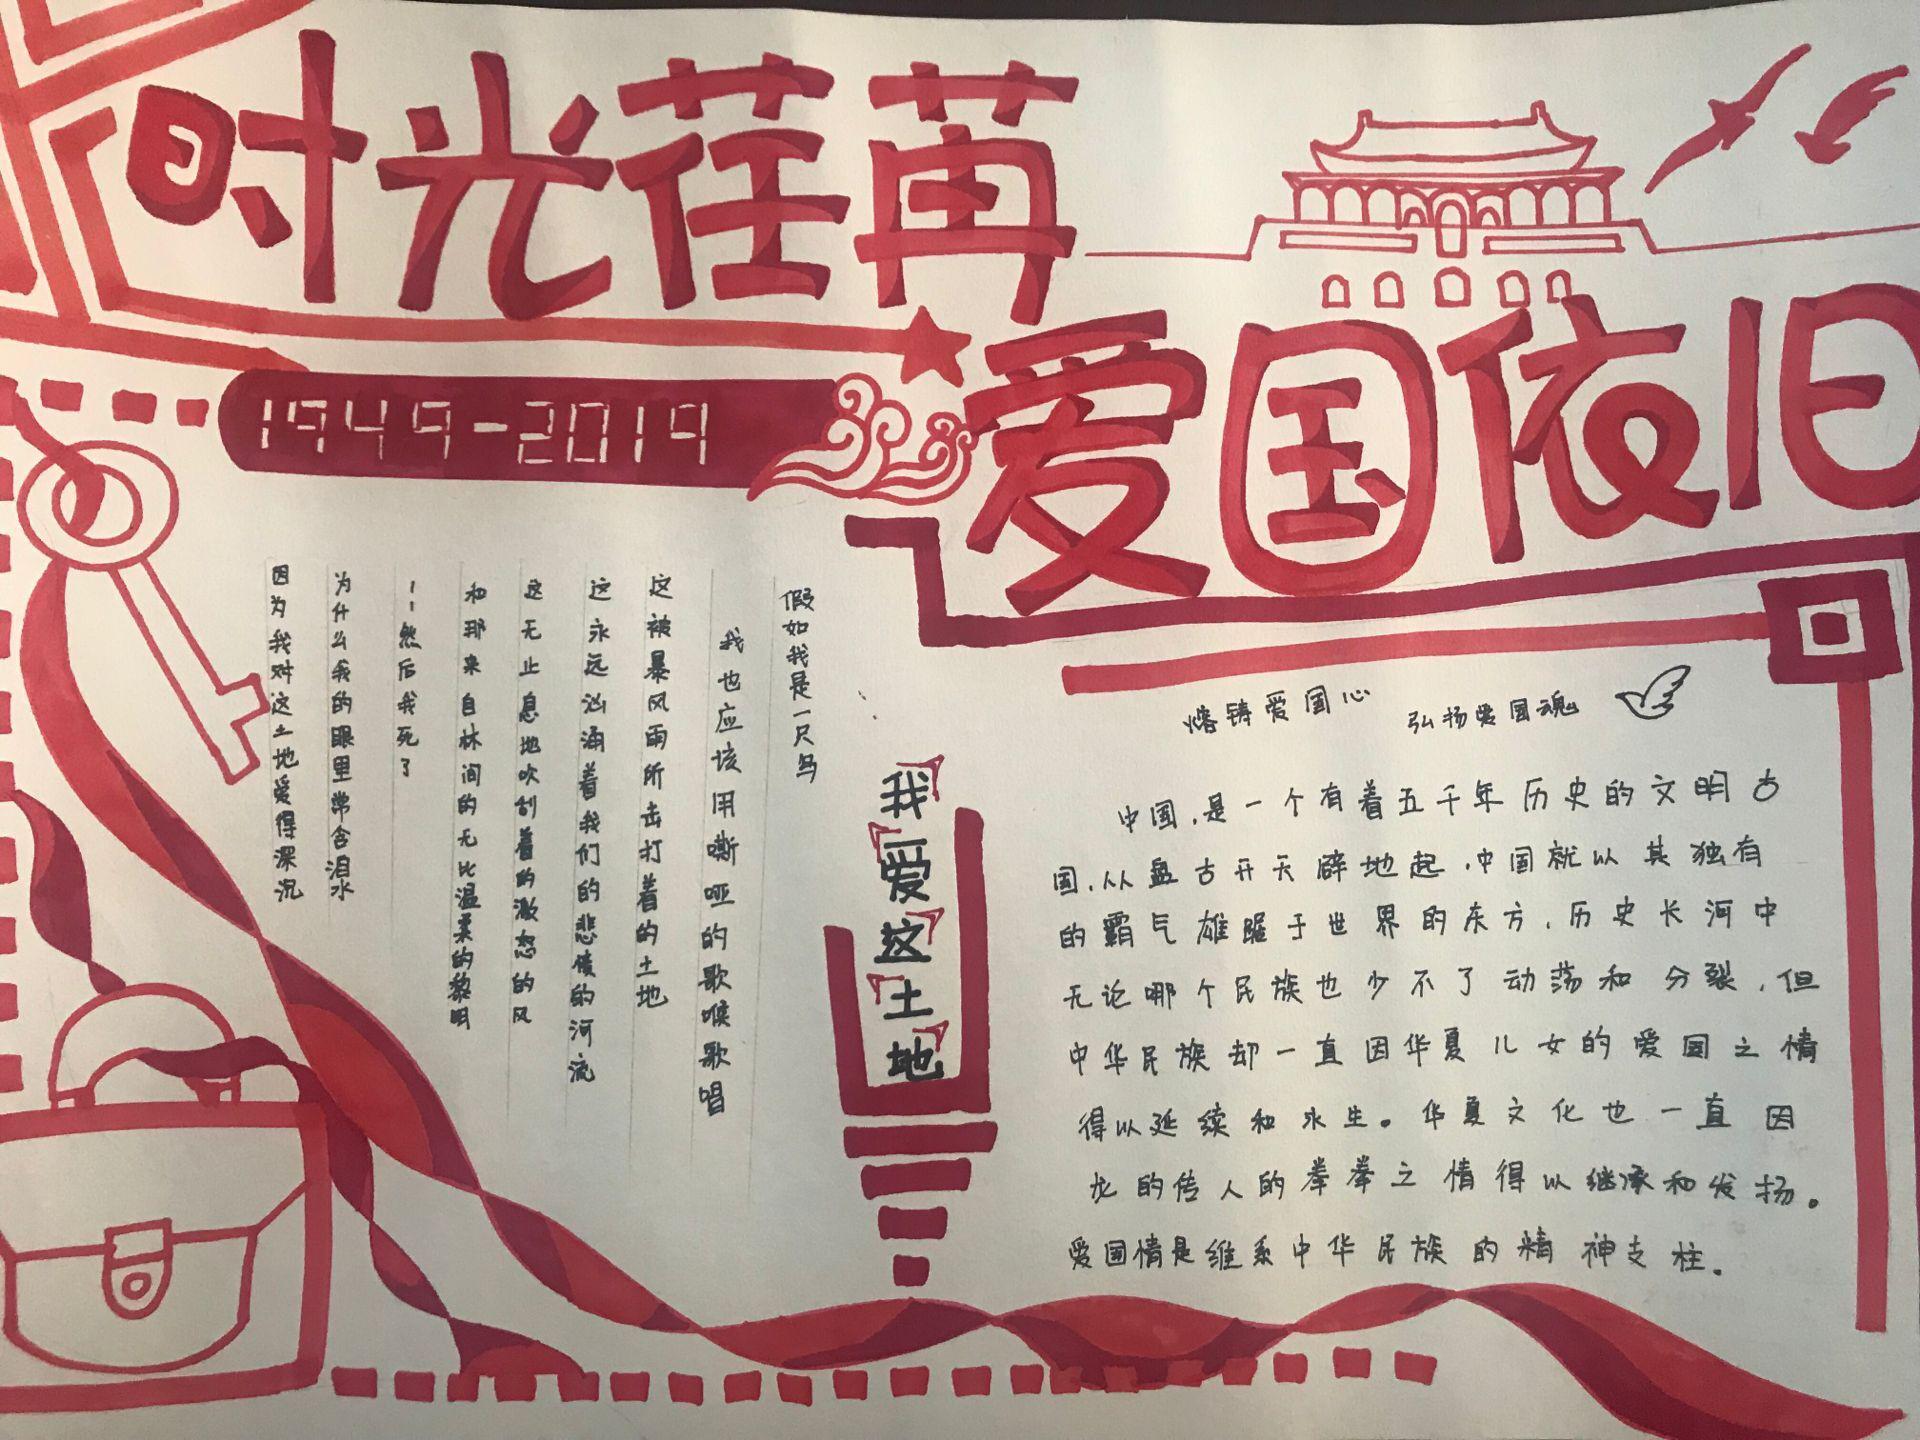 时光荏苒
爱国依旧
1949-2019
我爱这土地
假如我是一只鸟
我也应该用嘶哑的歌喉歌唱
这被暴风雨所击打着的土地
这永远汹涌着我们的悲愤的河流
这无止息地吹刮着的激怒的风
和那来自林间的无比温柔的黎明
——然后我死了
为什么我的眼里常含泪水
因为我对这土地爱得深沉
熔铸爱国心 弘扬爱国魂
中国，是一个有着五千年历史的文明古
国，从盘古开天辟地起，中国就以其独有
的霸气雄踞于世界的东方，历史长河中
无论哪个民族也少不了动荡和分裂，但
中华民族却一直因华夏儿女的爱国之情
得以延续和永生。华夏文化也一直因
龙的传人的拳拳之情得以继承和发扬。
爱国情是维系中华民族的精神支柱。